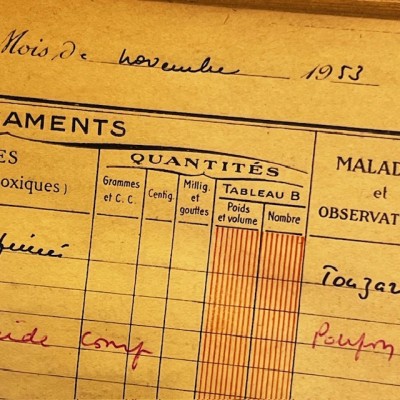 Mois de novembre 1953
AMENTS
QUANTITÉS
ES
oxiques)
Grammes
et C. C.
Centig.
Millig.
et
gouttes
TABLEAU B
Poids
et volume
Nombre
MALAD
et
OBSERVAT
ide comp